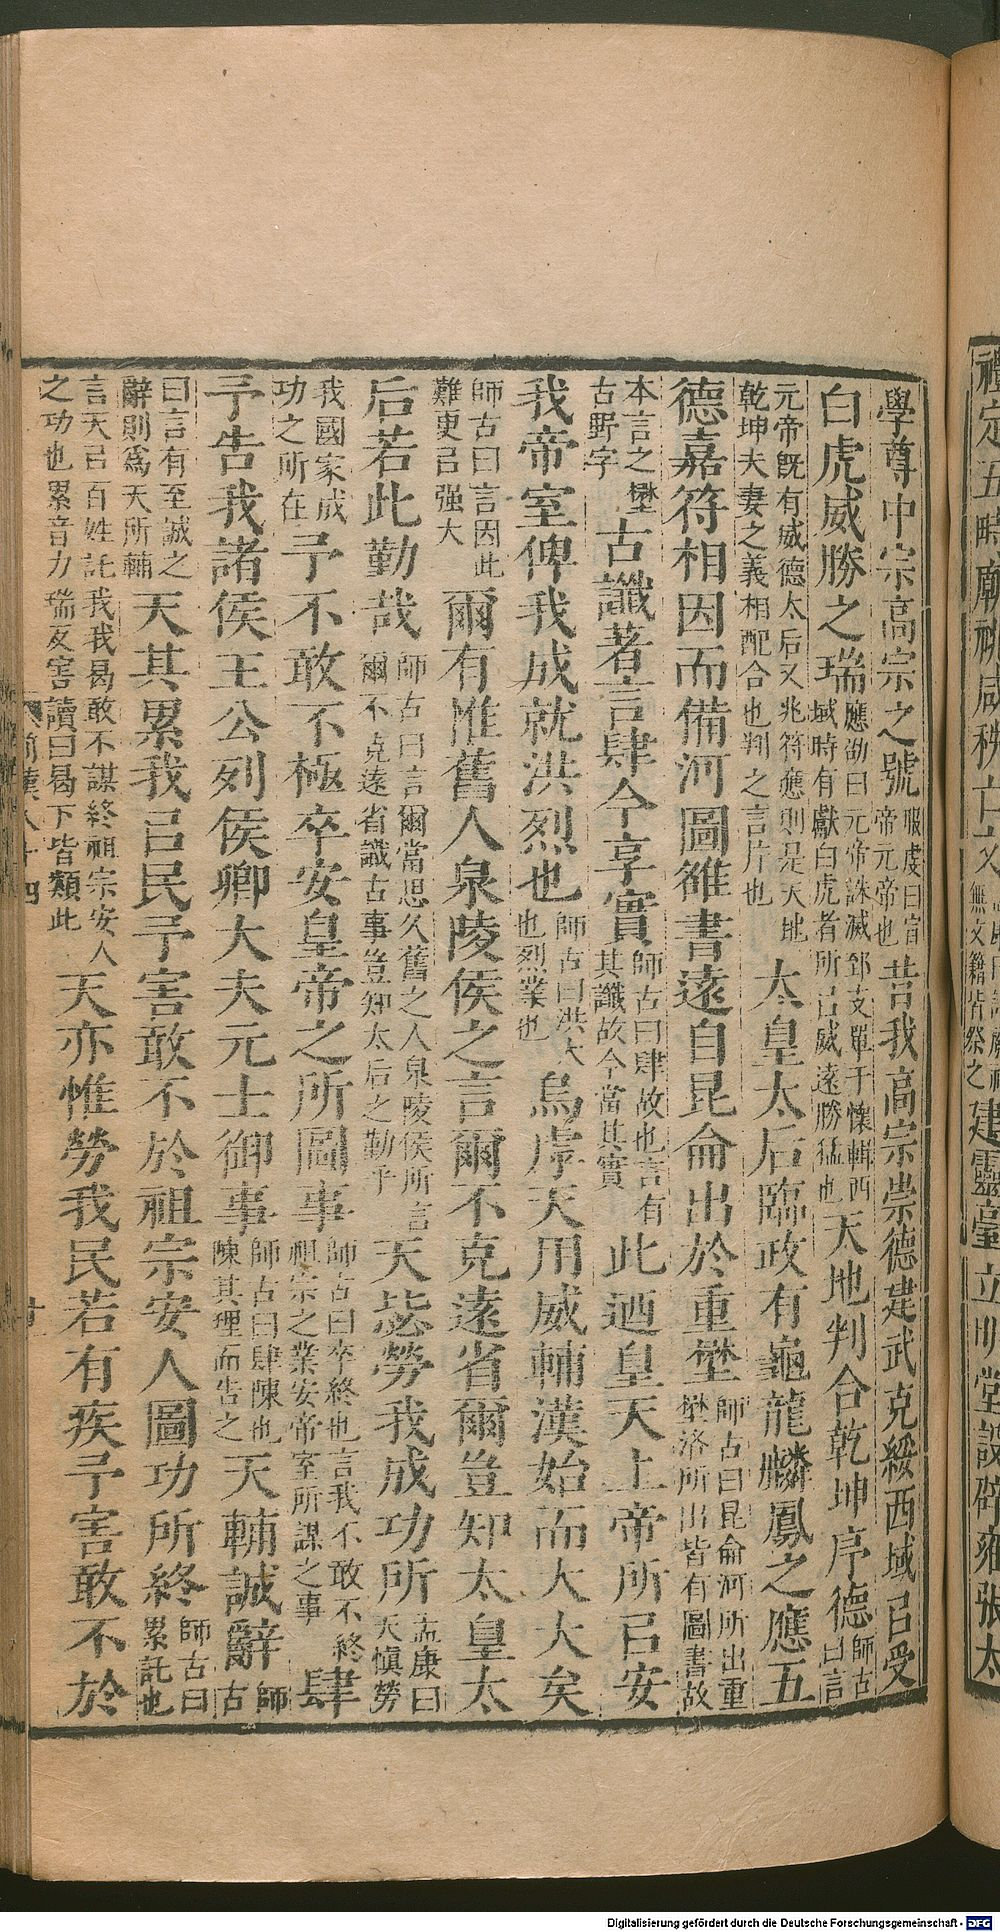 禮定五畤廟祧咸秩亡文
無文籍皆祭之
建靈臺立明堂設辟雍張太
學尊中宗高宗之號
服虔曰宣
帝元帝也
昔我高宗崇德建武克綏西域㠯受
白虎威勝之瑞
應劭曰元帝誅滅郅支單于懷輯西
域時有獻白虎者所㠯威遠勝猛也
天地判合乾坤序德
師古
曰言
元帝既有威德太后又兆符應則是天地
乾坤夫妻之義相配合也判之言片也
太皇太后臨政有龜龍麟鳳之應五
德嘉符相因而備河圖雒書遠自昆侖出於重壄
師古曰昆侖河所出重
壄洛所出皆有圖書故
本言之壄
古野字
古讖著言肆今享實
師古曰肆故也言有
其讖故今當其實
此廼皇天上帝所㠯安
我帝室俾我成就洪烈也
師古曰洪大
也烈業也
烏虖天用威輔漢始而大大矣
師古曰言因此
難更㠯强大
爾有惟舊人泉陵侯之言爾不克遠省爾豈知太皇太
后若此勤哉
師古曰言爾當思久舊之人泉陵侯所言
爾不克遠省識古事豈知太后之勤乎
天毖勞我成功所
孟康曰
天慎勞
我國家成
功之所在
予不敢不極卒安皇帝之所圖事
師古曰卒終也言我不敢不終
祖宗之業安帝室所謀之事
肆
予告我諸侯王公列侯卿大夫元士御事
師古曰肆陳也
陳其理而告之
天輔誠辭
師
古
曰言有至誠之
辭則爲天所輔
天其累我㠯民予害敢不於祖宗安人圖功所終
師古曰
累託也
言天㠯百姓託我我曷敢不謀終祖宗安人
之功也累音力瑞反害讀曰曷下皆類此
天亦惟勞我民若有疾予害敢不於
前漢八十四
Digitalisierung gefördert durch die Deutsche Forschungsgemeinschaft - DFG